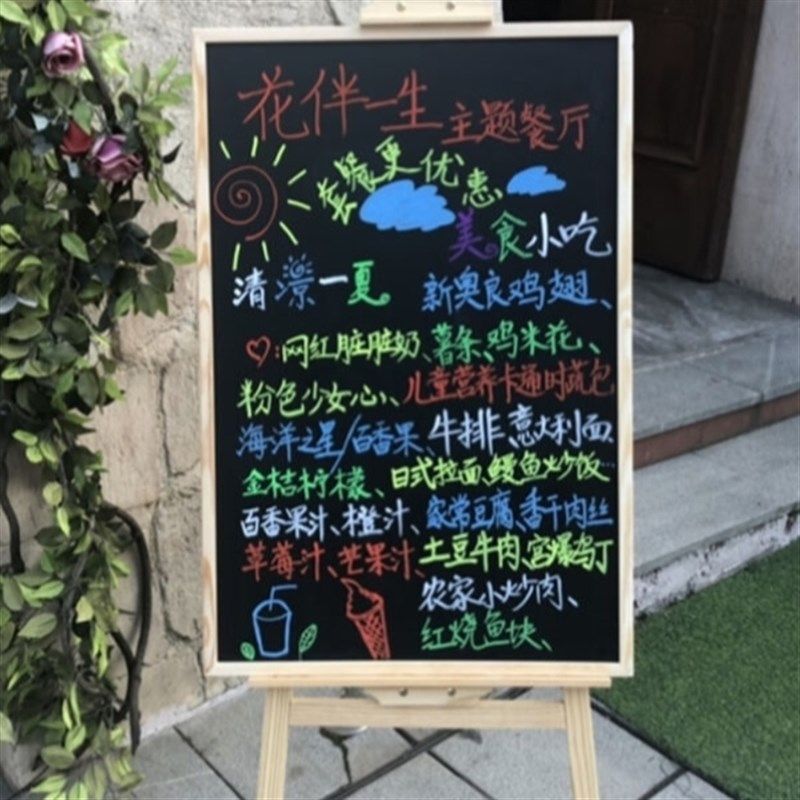 花伴一生主题餐厅
套餐更优惠
美食小吃
清凉一夏
新奥良鸡翅、
:网红脏脏奶、
粉色少女心、
海洋之星/百香果、
金桔柠檬、
百香果汁、橙汁、
草莓汁、芒果汁、
薯条、鸡米花、
儿童营养卡通时蔬包
牛排、意大利面
日式拉面、鳗鱼炒饭…
家常豆腐、香干肉丝
土豆牛肉、宫爆鸡丁
农家小炒肉、
红烧鱼块、